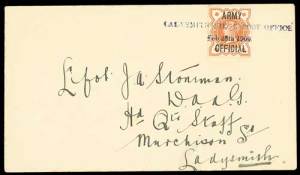 ARMY
LADYSMITH SIEGE POST OFFICE
Feb 28th 1900
OFFICIAL
J A Stoneman
D A A G
Hd Qrs Staff
Murchison St
Ladysmith